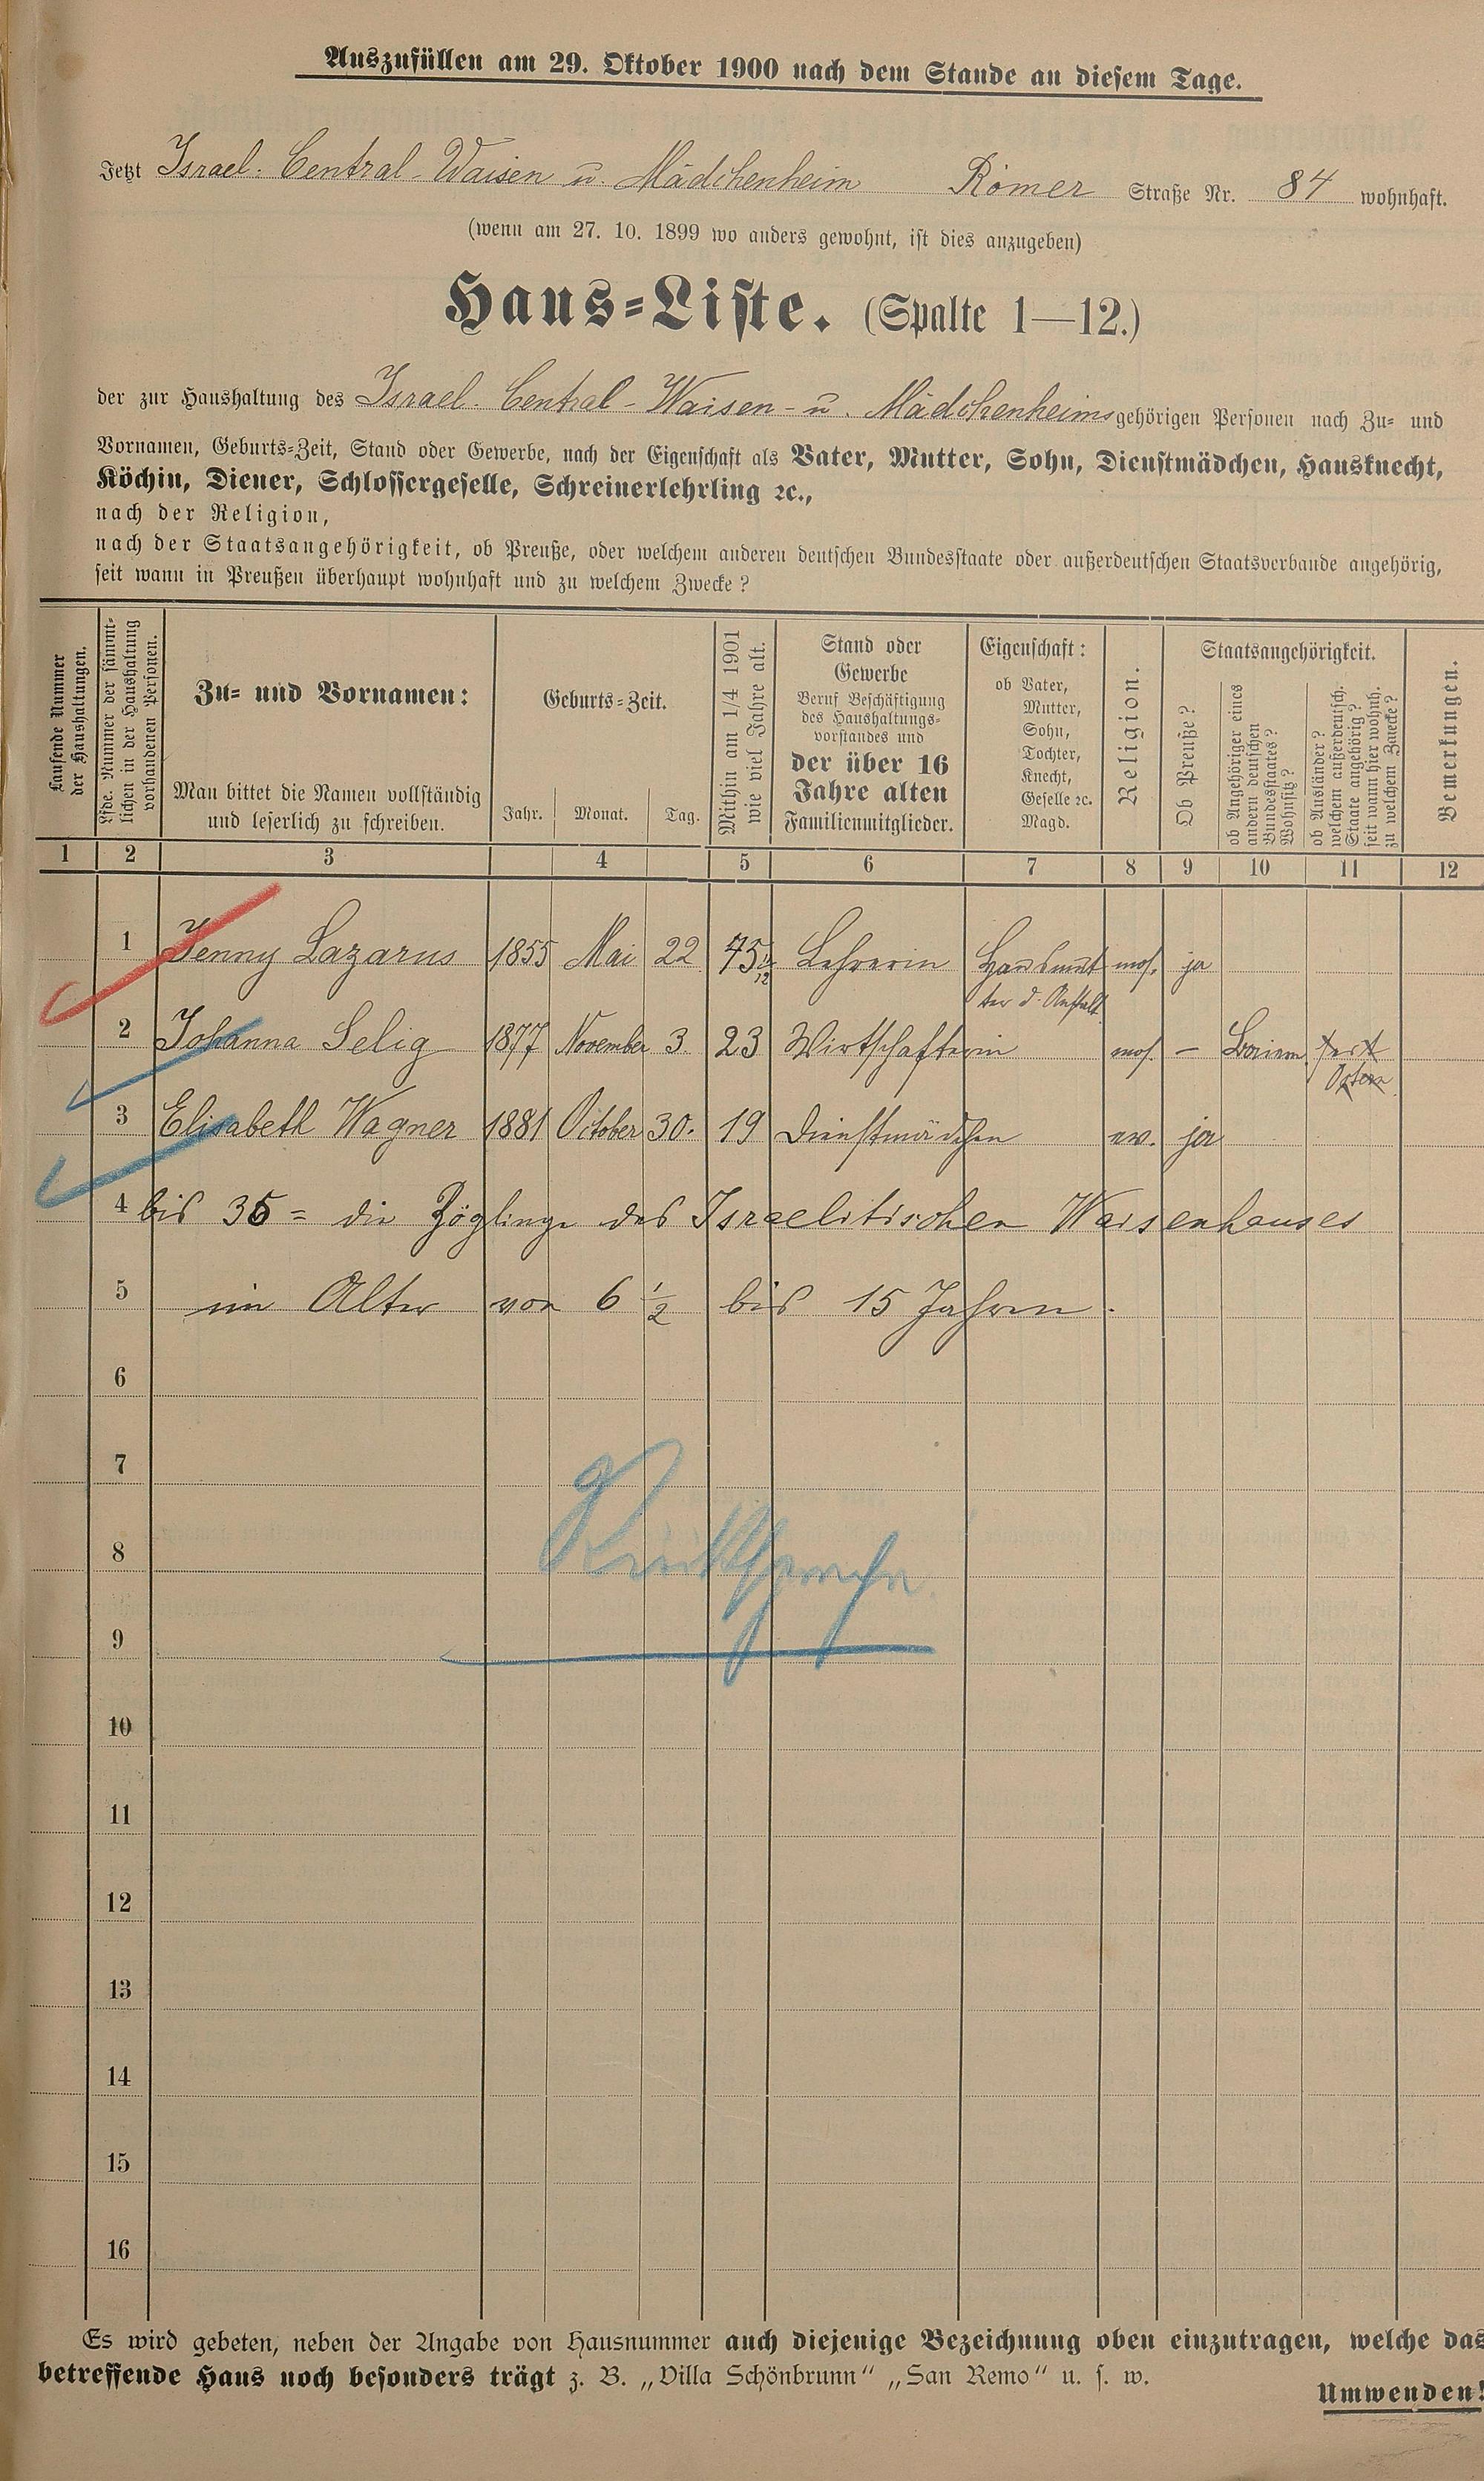 Auszufüllen am 29. Oktober 1900 nach dem Stande an diesem Tage.
Jetzt Israel. Central-Waisen u. Mädchenheim Römer Straße Nr. 84 wohnhaft.
(wenn am 27. 10. 1899 wo anders gewohnt, ist dies anzugeben)
Haus-Liste. (Spalte 1—12.)
der zur Haushaltung des Israel. Central-Waisen- u. Mädchenheims gehörigen Personen nach Zu- und
Vornamen, Geburts-Zeit, Stand oder Gewerbe, nach der Eigenschaft als Vater, Mutter, Sohn, Dienstmädchen, Hausknecht,
Köchin, Diener, Schlossergeselle, Schreinerlehrling ꝛc.,
nach der Religion,
nach der Staatsangehörigkeit, ob Preuße, oder welchem anderen deutschen Bundesstaate oder außerdeutschen Staatsverbande angehörig,
seit wann in Preußen überhaupt wohnhaft und zu welchem Zwecke?
Laufende Nummer
der Haushaltungen.
Lfde. Nummer der sämmt-
lichen in der Haushaltung
vorhandenen Personen.
Zu- und Vornamen:
Man bittet die Namen vollständig
und leserlich zu schreiben.
Geburts-Zeit.
Jahr. Monat. Tag.
Mithin am 1/4 1901
wie viel Jahre alt.
Stand oder
Gewerbe
Beruf Beschäftigung
des Haushaltungs-
vorstandes und
der über 16
Jahre alten
Familienmitglieder.
Eigenschaft:
ob Vater,
Mutter,
Sohn,
Tochter,
Knecht,
Geselle ꝛc.
Magd.
Religion.
Staatsangehörigkeit.
Ob Preuße?
ob Angehöriger eines
andern deutschen
Bundesstaates?
Wohnsitz?
ob Ausländer?
welchem außerdeutsch.
Staate angehörig?
seit wann hier wohnh.
zu welchem Zwecke?
Bemerkungen.
1 2 3 4 5 6 7 8 9 10 11 12
1 Jenny Lazarus 1855 Mai 22 Lehrerin Hausmut mos. ja
ter d. Anstalt
2 Johanna Selig 1877 November 3 23 Wirtschafterin mos. –
Ostern
3 Elisabeth Wagner 1881 October 30. 19 Dienstmädchen ev. ja
4 bis 36 = die Zöglinge des Israelitischen Waisenhauses
5 im Alter von 6 1/2 bis 15 Jahren.
6
7
8 Rücksprache
9
10
11
12
13
14
15
16
Es wird gebeten, neben der Angabe von Hausnummer auch diejenige Bezeichnung oben einzutragen, welche das
betreffende Haus noch besonders trägt z. B. „Villa Schönbrunn“ „San Remo“ u. s. w.
Umwenden!